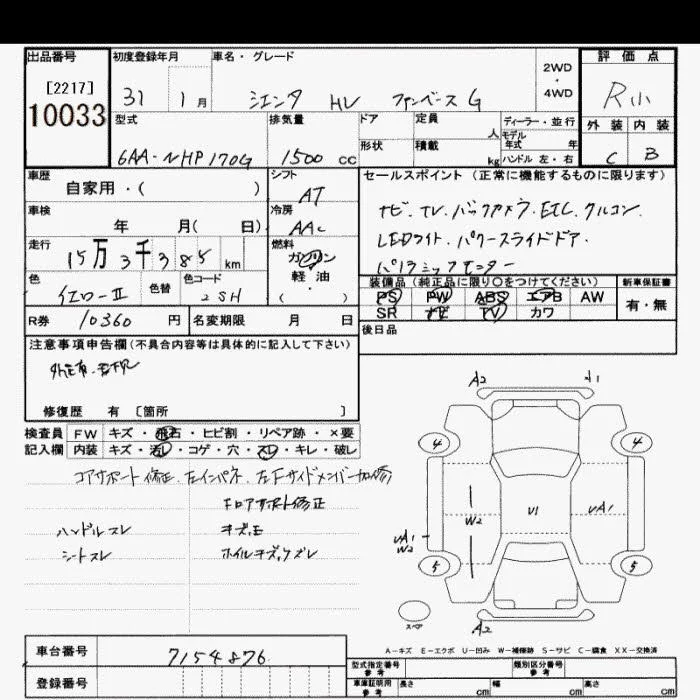 出品番号 初度登録年月 車名・グレード 評価点
[2217]
10033
31 1月 シエンタ HV ファンベース G
2WD・4WD
R小
型式 排気量 ドア 定員 人 ディーラー・並行
モデル年式 年
形状 積載 kg ハンドル 左・右
外装 内装
6AA-NHP170G 1500 cc
C B
車歴 シフト セールスポイント(正常に機能するものに限ります)
自家用・( ) AT
車検 冷房
年 月( 日) AAC
ナビ.TV.バックカメラ.ETC.クルコン.
LEDライト.パワースライドドア.
パノラミックモニター
走行 燃料
15万3千385km ガソリン
軽油
( )
色 色替 色コード
2SH
装備品(純正品に限り○をつけてください) 新車保証書
PS PW ABS エアB AW 有・無
SR ナビ TV カワ
R券 10360円 名変期限 月 日
後日品
注意事項申告欄(不具合内容等は具体的に記入して下さい)
修復歴 有 〔箇所 〕
検査員 FW キズ・飛石・ヒビ割・リペア跡・×要
記入欄 内装 キズ・汚レ・コゲ・穴・スレ・キレ・破レ
コアサポート修正.左インパネ.左Fサイドメンバー
ロアサポート修正
ハンドルスレ
シートスレ ホイルキズ.ケズレ
A2 A1
4 4
W2 U1 UA1
UA1
W2
5 5
スペア
A2
A-キズ E-エクボ U-凹み W-補修跡 S-サビ C-腐食 XX-交換済
車台番号 7154876
登録番号
型式指定番号 参考 類別区分番号 参考
車庫証明用 参考 長さ cm 幅 cm 高さ cm